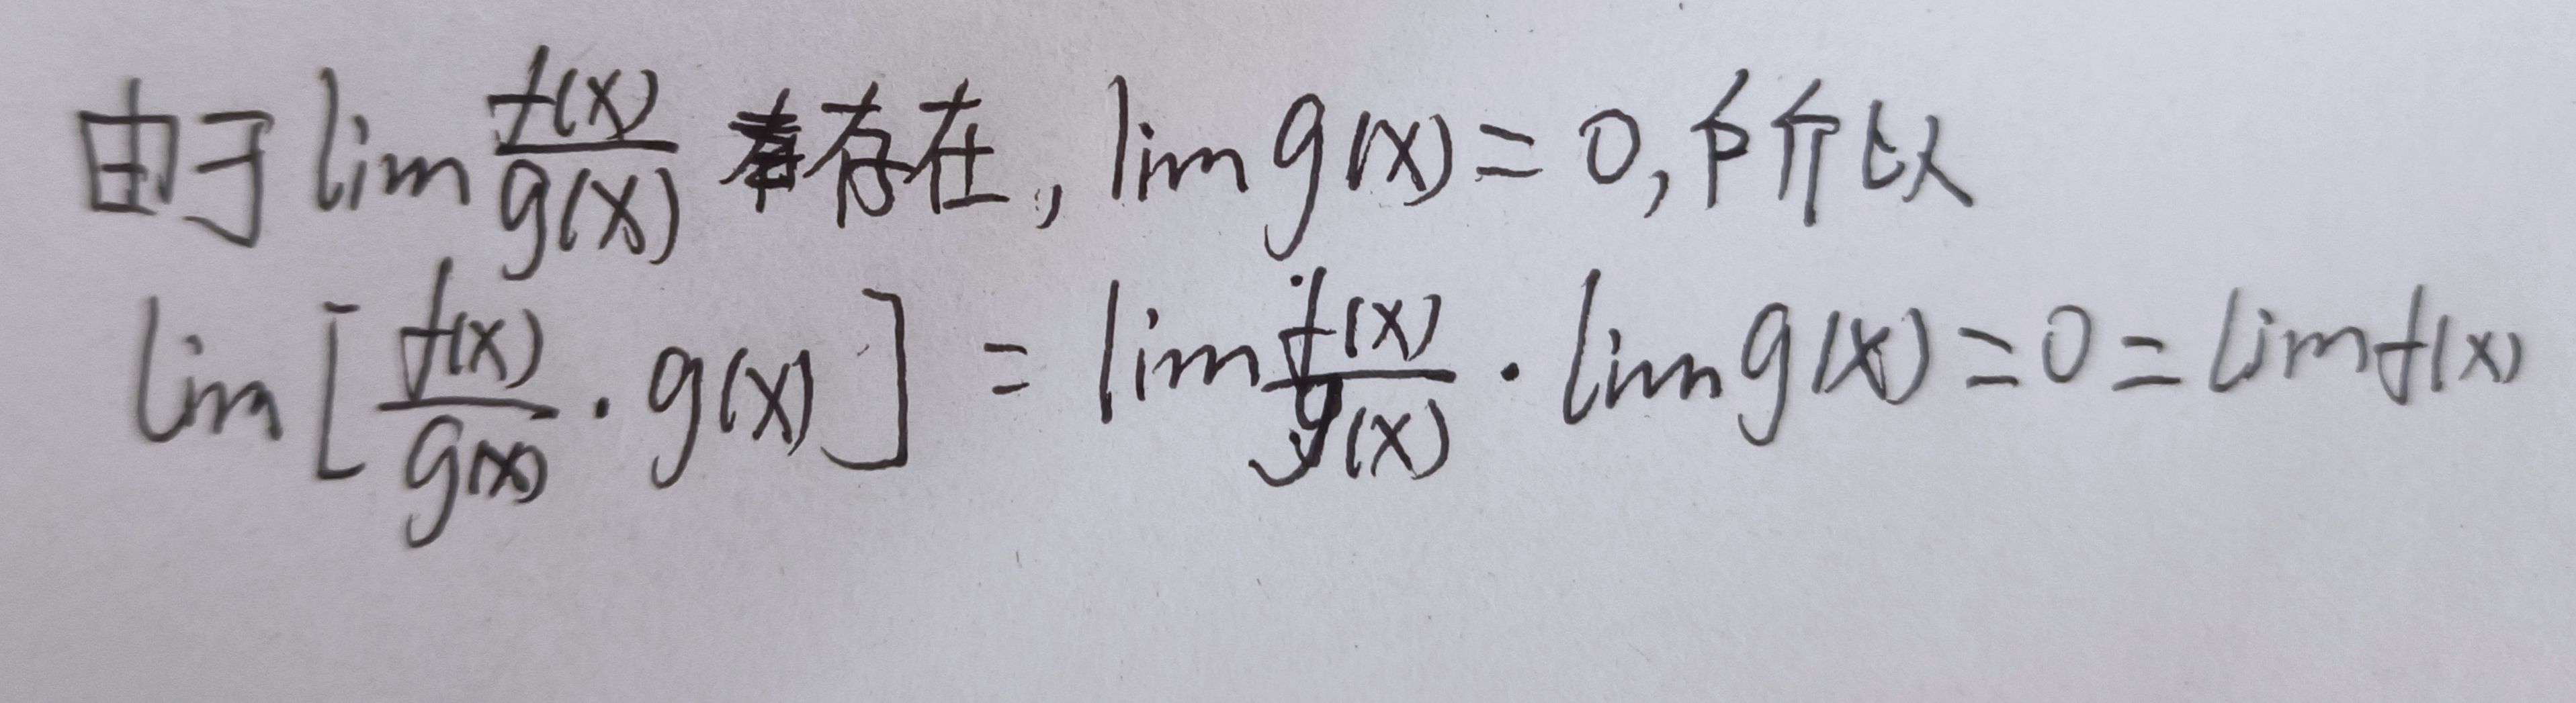 由于 lim f(x)/g(x) 存在, lim g(x) = 0, 所以
lim [f(x)/g(x) · g(x)] = lim f(x)/g(x) · lim g(x) = 0 = lim f(x)